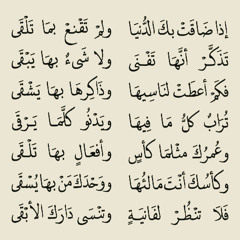 إذا ضَاقَتْ بكَ الدُّنيَا ولمْ تَقْنعْ بمَا تَلْقَى
تَذكَّرْ أنَّهَا تَفْنَى ولا شَىءٌ بهَا يَبْقَى
فكَمْ أعطَتْ لنَاسِيهَا وذاكِرهَا بهَا يَشْقَى
تُرَابٌ كلُّ مَا فِيهَا ويَدْنُو كلَّمَا يَرْقَى
وعُمرُكَ مثْلمَا كأسٍ وأفعَالٍ بهَا تَلْقَى
وكأسُكَ أنتَ مَالئُهَا ووَحْدَكَ مَنْ بهَا يُسْقَى
فَلَا تنْظُرْ لفَانِيَةٍ وتنْسَى دَارَكَ الأبْقَى